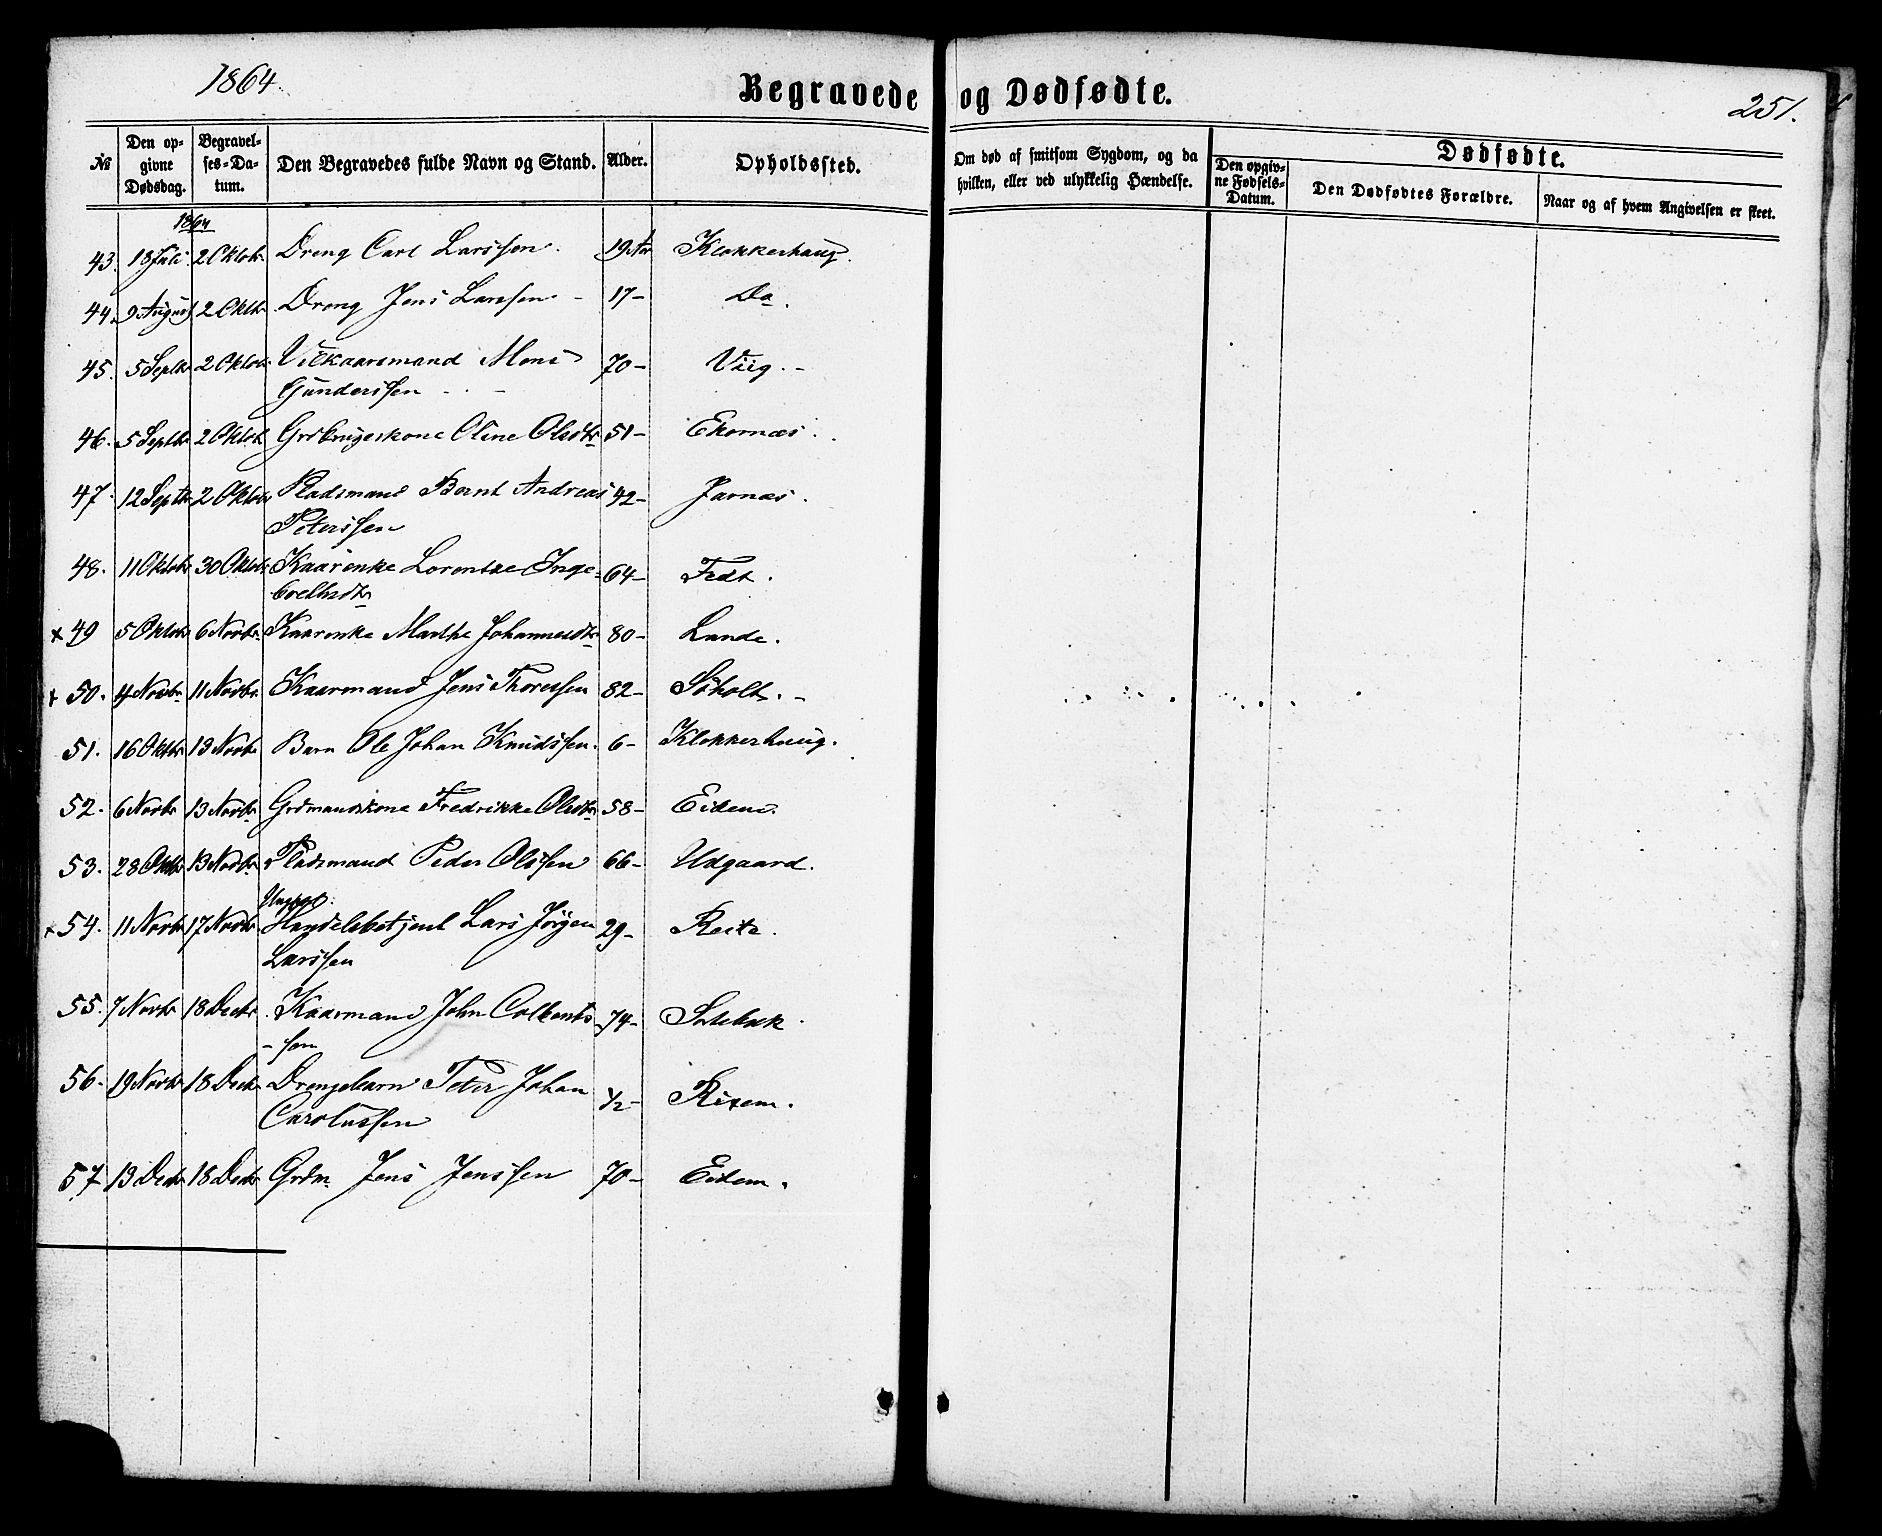 1864.
Begravede og Dødfødte.
251.
№ Den opgivne Dødsdag. Begravelses-Datum. Den Begravedes fulde Navn og Stand. Alder. Opholdssted. Om død af smitsom Sygdom, og da hvilken, eller ved ulykkelig Hændelse. Dødfødte. Den opgivne Fødsels-Datum. Den Dødfødtes Forældre. Naar og af hvem Angivelsen er skeet.
1864
43. 18 Juli 2 Oktobr Dreng Carl Larssen. 19 Aar Klokkerhaug.
44. 9 August 2 Oktbr Dreng Jens Larssen - 17- Do.
45. 5 Septbr 2 Oktobr Vilkaarsmand Mons 70- Viig. -
Gunderssen - . -
46. 5 Septbr 2 Oktob Grdbrugerskone Oline Olsdtr 51- Ekornæs.
47. 12 Septbr 2 Oktobr Pladsmand Bernt Andreas 42- Jarnæs.
Peterssen
48. 11 Oktobr 30 Oktobr Kaarenke Lorentze Inge- 64- Fedt.
×49 5 Oktobr 6 Novbr. Kaarenke Marthe Johannesdtr 80- Lande.
× 50. 4 Novbr. 11 Novbr. Kaarmand Jens Thoressen 82- Søholt. -
51. 16 Oktbr 13 Novbr Barn Ole Johan Knudssen. 6- Klokkerhaug.
52. 6 Novbr 13 Novbr Grdmandskone Fredrikke Olsdtr 58- Eidem.
53. 28 Oktbr 13 Novbr. Pladsmand Peder Olssen 66- Udgaard.
Ungkarl.
×54. 11 Novbr 17 Novbr Handelsbetjent Lars Jørgen 29- Reite.
Larssen
55. 7 Novbr 18 Decbr. Kaarmand John Colbents 74-
- sen
56. 19 Novbr 18 Decbr Drengebarn Peter Johan ½- Risem.
Carolussen
57 13 Decbr 18 Decbr Grdm. Jens Jenssen 70- Eidem.